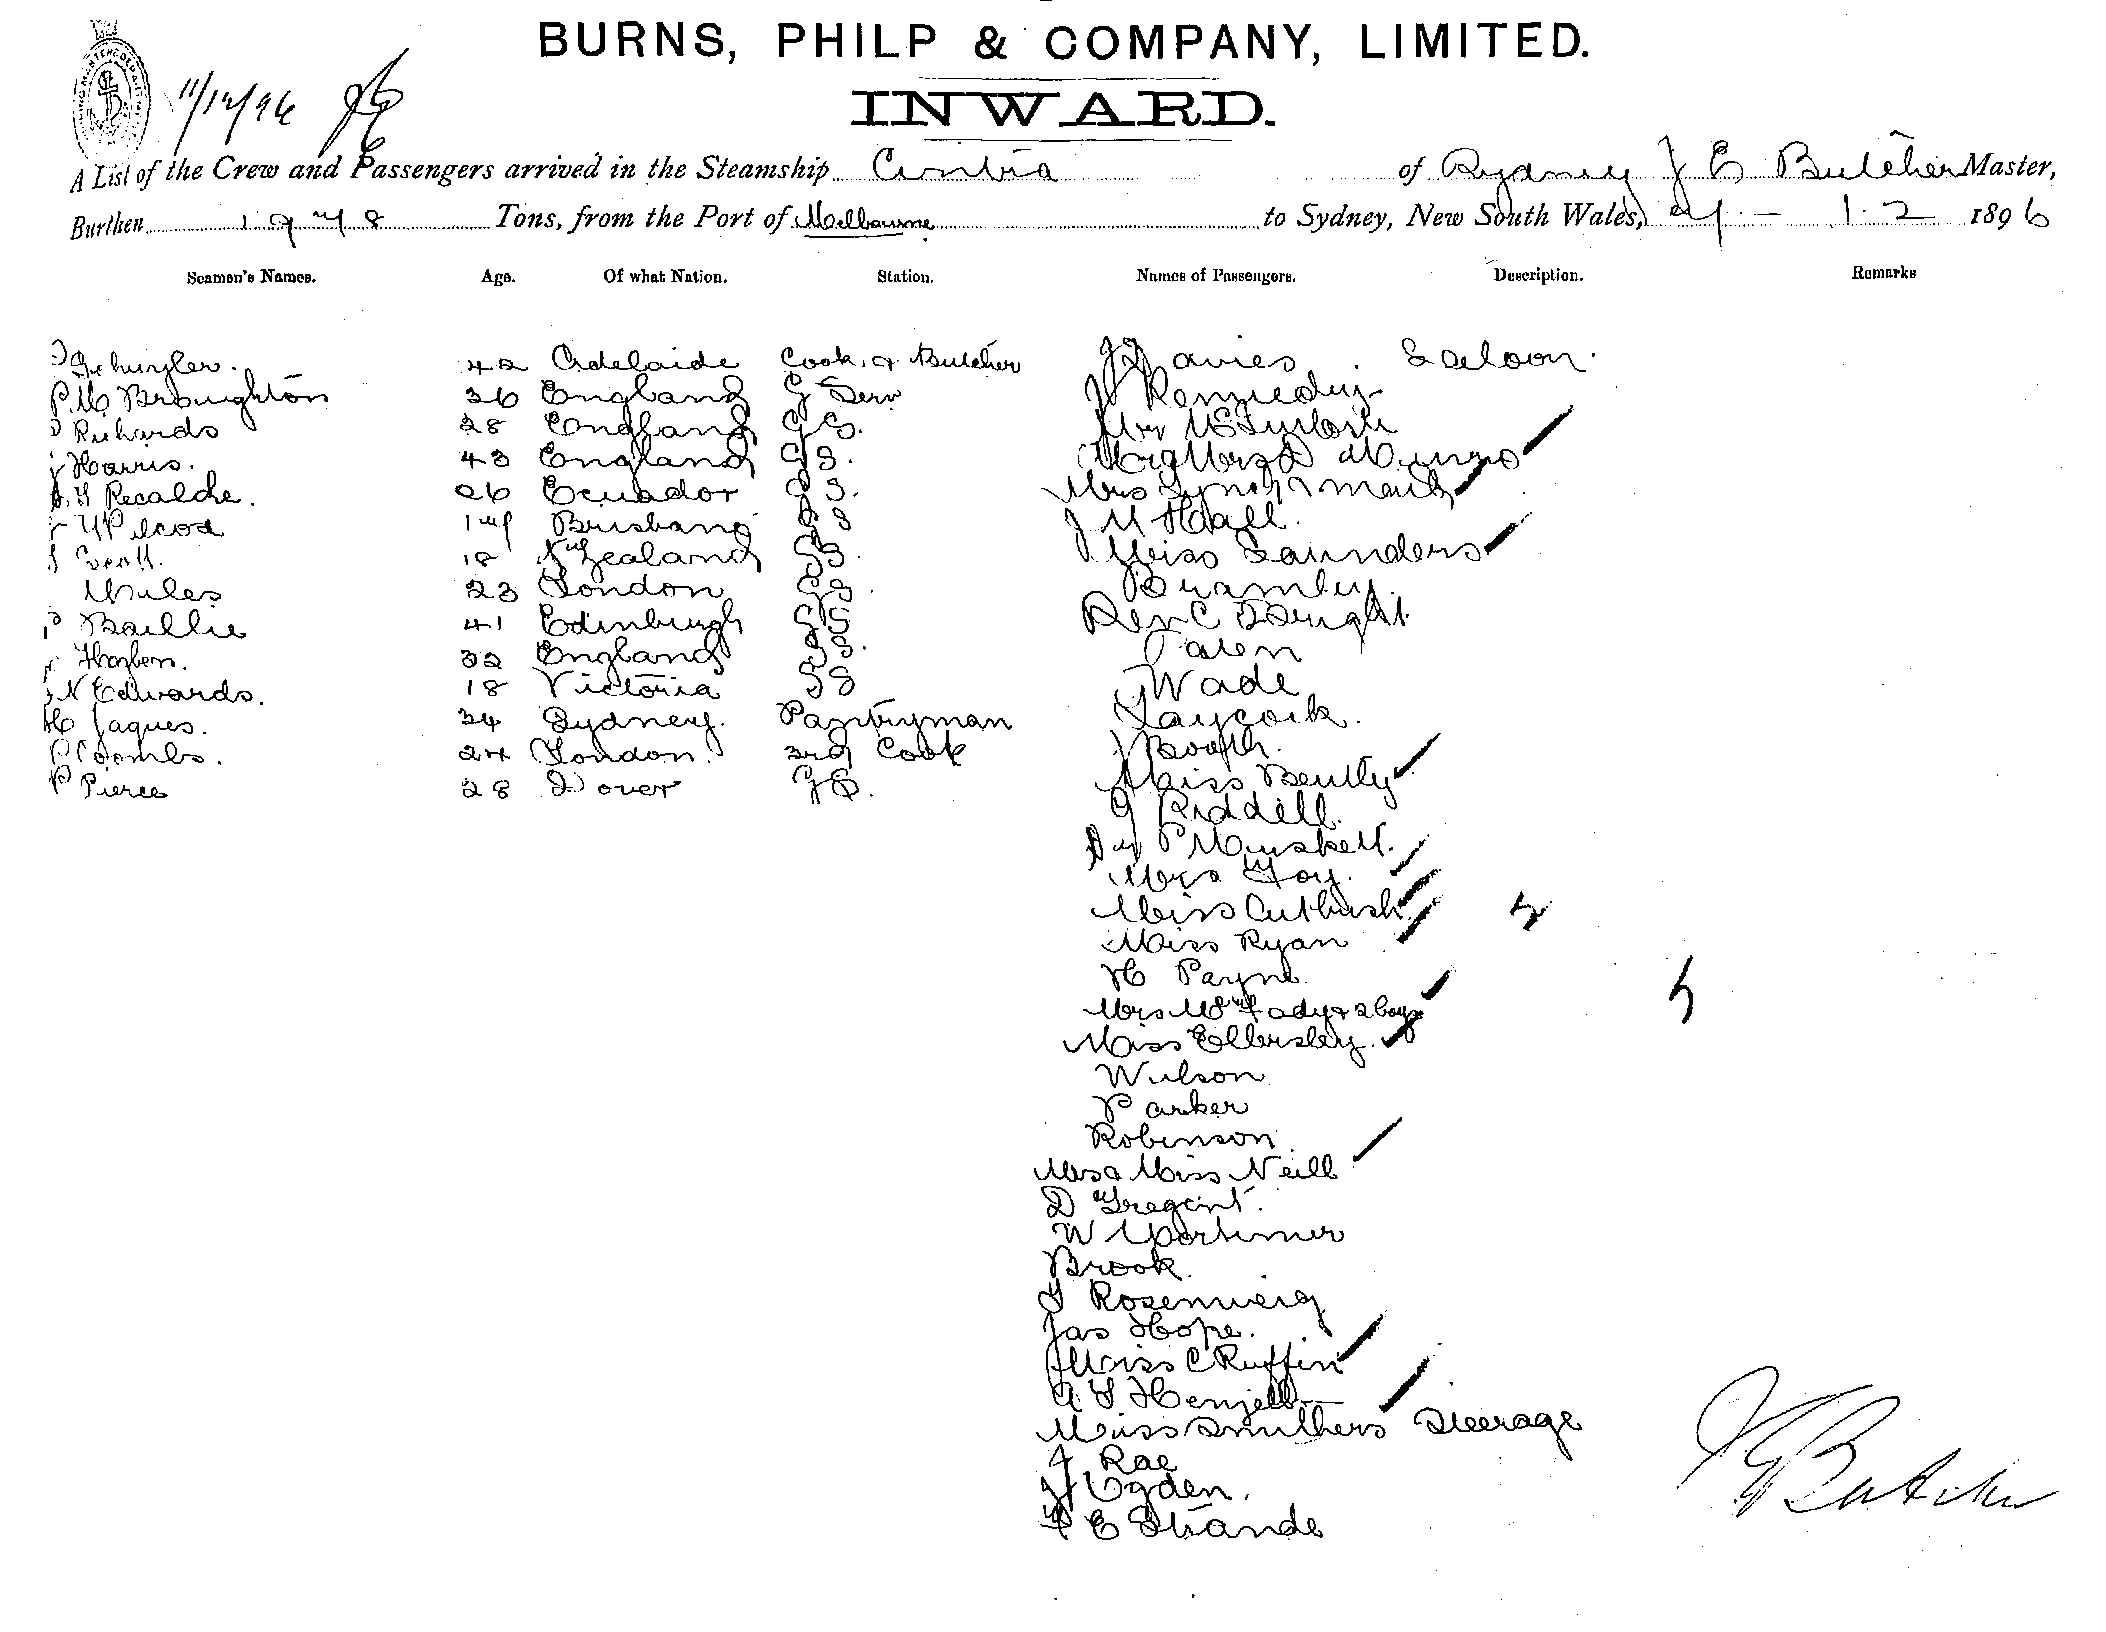 BURNS, PHILP & COMPANY, LIMITED.
INWARD.
11/12/96
A List of the Crew and Passengers arrived in the Steamship Cintra of Sydney J E Butcher Master,
Burthen 1978 Tons, from the Port of Melbourne to Sydney, New South Wales, 12 1896
Seamen's Names. Age. Of what Nation. Station. Names of Passengers. Description. Remarks
42 Adelaide Cook & Butcher J Davies Saloon.
Broughton 36 England G Serv J Kennedy
Richards 28 England GS. McIntosh
J Harris. 43 England GS. Mr & Mrs D Munro
Recalde. 26 Ecuador GS. Mrs Lynch & maid
17 Brisbane GS J M Hall.
J Scott. 18 N Zealand GS Miss Saunders
Miles 23 London GS Bramley.
P Baillie 41 Edinburgh GS Rev C
32 England GS.
J N Edwards. 18 Victoria GS Wade
H Jaques. 34 Sydney. Pantryman Laycock.
P Coombs. 24 London. 3rd Cook J Booth.
P Pierce 28 Dover GS. Miss Bently
G Riddell.
P Muskett.
Mrs Foy.
Miss Cutbush.
Miss Ryan
H Payne
Mrs & 2 boys
Miss Ellersley.
Wilson
Parker
Robinson
Mrs & Miss Neill
D Tregent.
W Mortimer
Brook.
Jas Hope.
Miss C Ruffin
A S Henzell
Miss Smithers Steerage
J Rae
J Ogden.
E Strande
J E Butcher